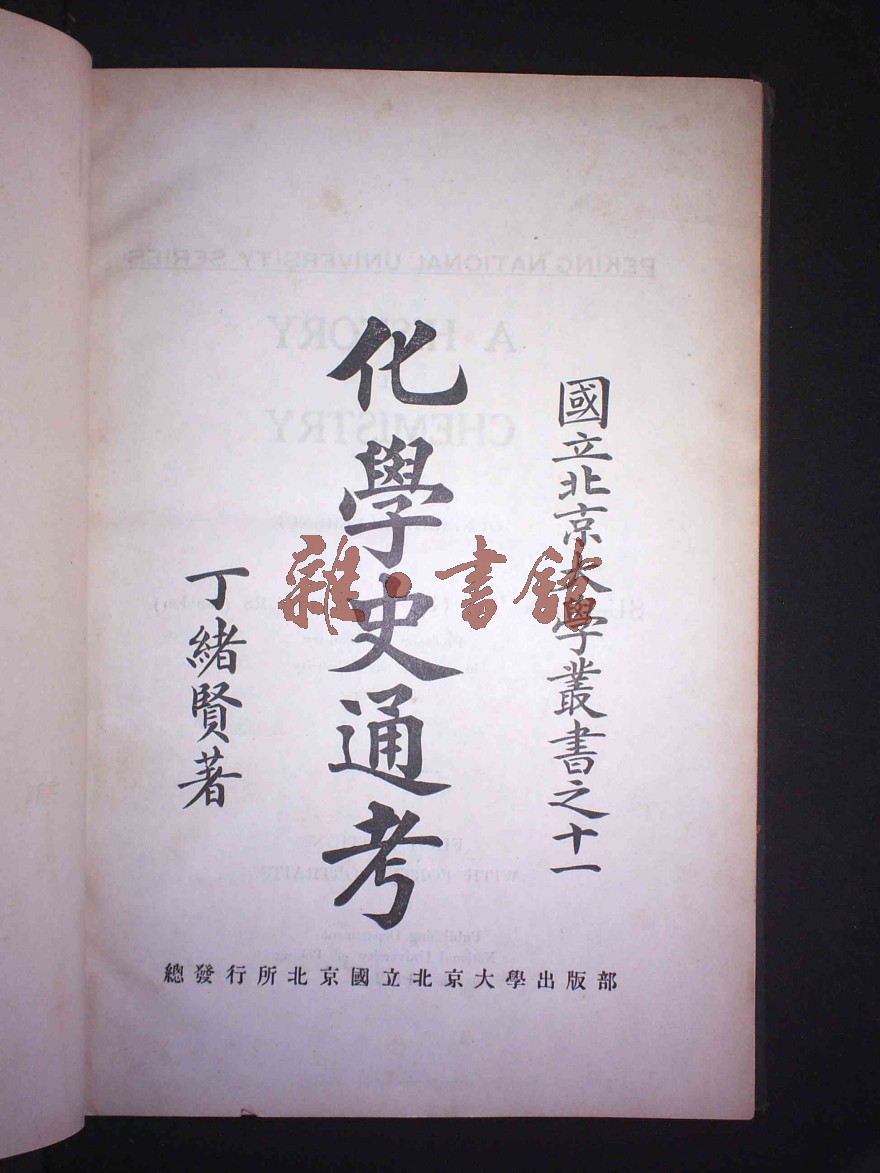 國立北京大學叢書之十一
化學史通考
丁緒賢著
總發行所北京國立北京大學出版部
雜·書館
PEKING NATIONAL UNIVERSITY SERIES
A HISTORY
CHEMISTRY